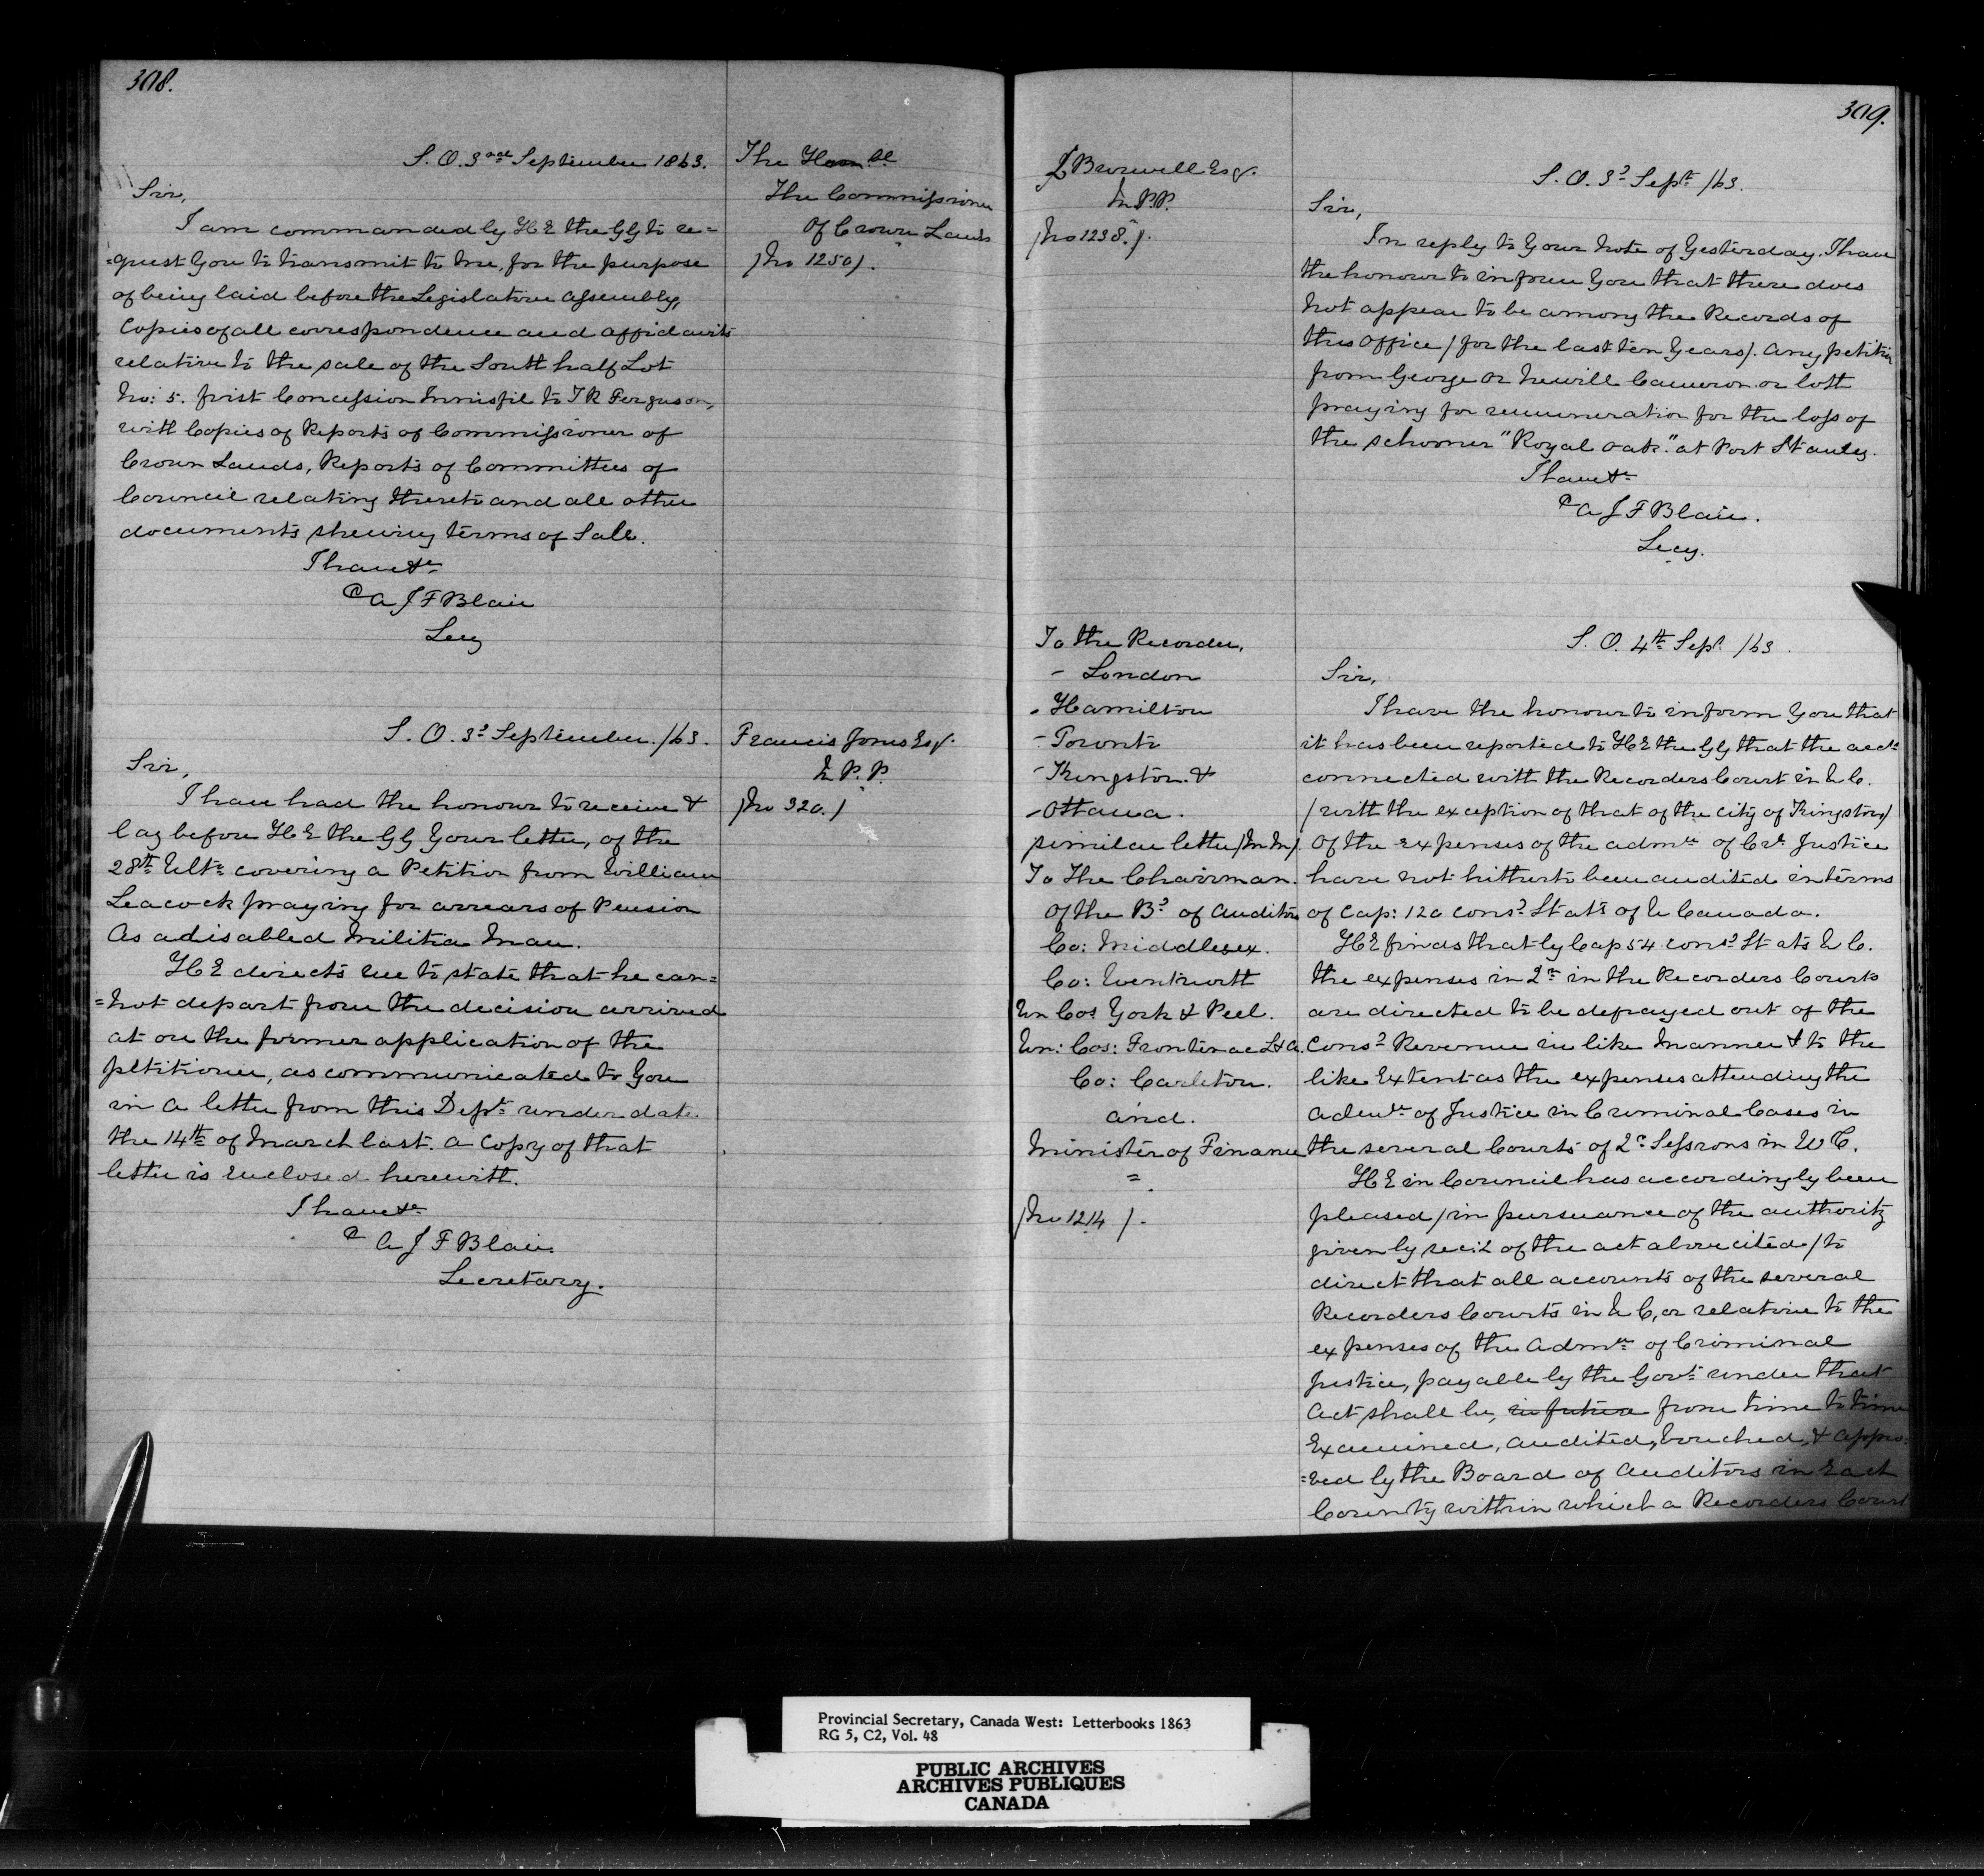 308.
S. O. 3rd September 1863.
The Honble
The Commissioner
Of Crown Lands
(No 1250).
Sir,
I am commanded by H E the GG to re=
=quest you to transmit to me, for the purpose
of being laid before the Legislative Assembly,
Copies of all correspondence and affidavits
relative to the sale of the South half Lot
No: 5. first Concession Innisfil to T R Ferguson,
with Copies of Reports of Commissioner of
Crown Lands, Reports of Committees of
Council relating thereto and all other
documents shewing terms of Sale.
I have &c
A J F Blair
Secy
S. O. 3d September /63.
Francis Jones Esqr.
M. P. P.
(No 320.)
Sir,
I have had the honour to receive &
lay before H E the GG your letter, of the
28th Ulto covering a Petition from William
Leacock praying for arrears of Pension
As a disabled Militia Man.
H E directs me to state that he can=
=not depart from the decision arrived
at on the former application of the
petitioner, as communicated to you
in a letter from this Dept under date
the 14th of March last. A Copy of that
letter is enclosed herewith.
I have &c
A J F Blair.
Secretary.
309.
L Burwell Esqr.
M.P.P.
(No 1238.).
S. O. 3d Sept /63.
Sir,
In reply to your note of Yesterday, I have
the honour to inform you that there does
not appear to be among the Records of
this Office (for the last ten years). any petition
from George or Newill Cameron or both
praying for remuneration for the loss of
the schooner "Royal Oak." at Port Stanley.
I have &c
A J F Blair.
Secy.
To the Recorder,
- London
- Hamilton
- Toronto
- Kingston &
- Ottawa.
similar letter (M M).
To The Chairman.
Of the Bd of Auditors
Co: Middlesex.
Co: Wentworth
Un Cos York & Peel.
Un: Cos: Frontenac L & A.
Co: Carleton.
and.
Minister of Finance
=
(No 1214).
S. O. 4th Sept /63.
Sir,
I have the honour to inform you that
it has been reported to H E the GG that the accts
connected with the Recorders Court in U C.
(with the exception of that of the City of Kingston)
Of the expenses of the admn of Crl Justice
have not hitherto been audited in terms
of Cap: 120 consd Stats of U Canada.
H E finds that by Cap 54 consd Stats U C.
the expenses in Qn in the Recorders Courts
are directed to be defrayed out of the
Consd Revenue in like manner & to the
like Extent as the expenses attending the
admn of Justice in Criminal Cases in
the several Courts of Qr Sessions in U C.
H E in Council has accordingly been
pleased (in pursuance of the authority
given by sec: 2 of the act above cited) to
direct that all accounts of the several
Recorders Courts in U C, or relative to the
expenses of the Admn of Criminal
Justice, payable by the Govt under that
Act shall be, in future from time to time
Examined, audited, vouched, & appro=
=ved by the Board of Auditors in each
County within which a Recorders Court
Provincial Secretary, Canada West: Letterbooks 1863
RG 5, C2, Vol. 48
PUBLIC ARCHIVES
ARCHIVES PUBLIQUES
CANADA